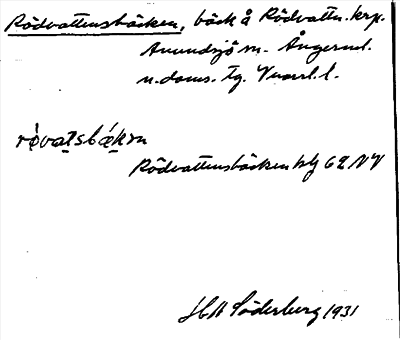 Rödvattensbäcken, bäck å Rödvattn. krp.
Anundsjö sn. Ångerml.
n. doms. tg. Vnorrl. l.
rö́vat̲sbǽk̲n
Rödvattensbäcken blg 62 NV
HN Söderberg 1931